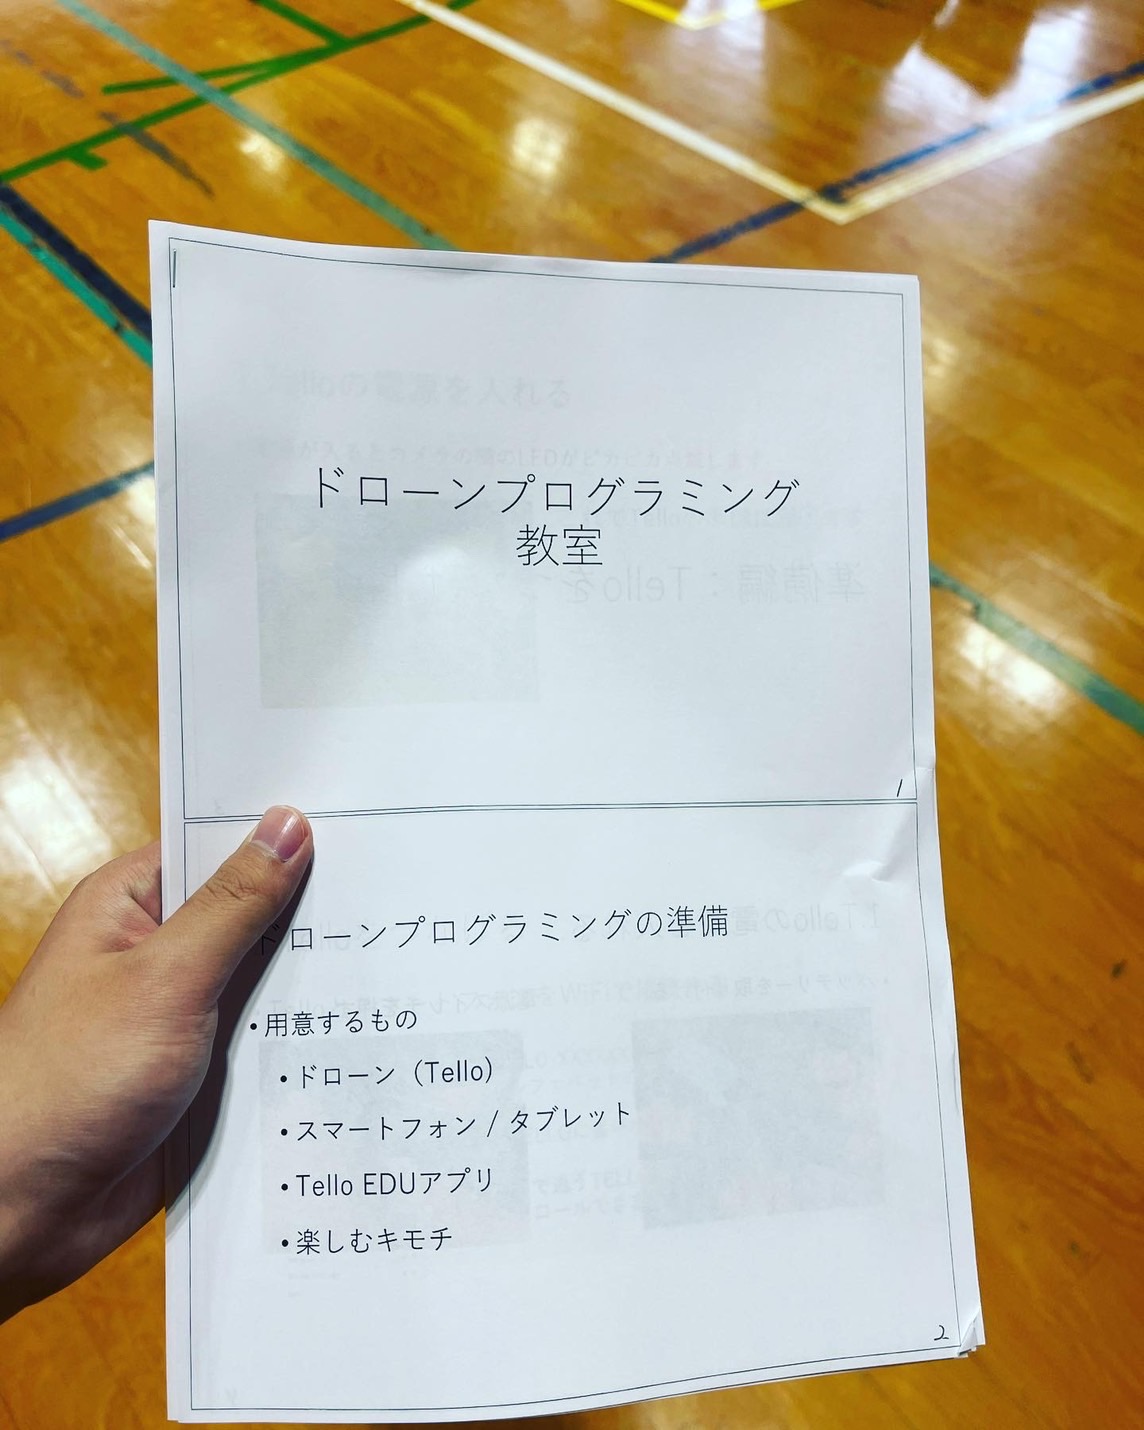 ドローンプログラミング
教室
1
ドローンプログラミングの準備
• 用意するもの
• ドローン（Tello）
• スマートフォン / タブレット
• Tello EDUアプリ
• 楽しむキモチ
2